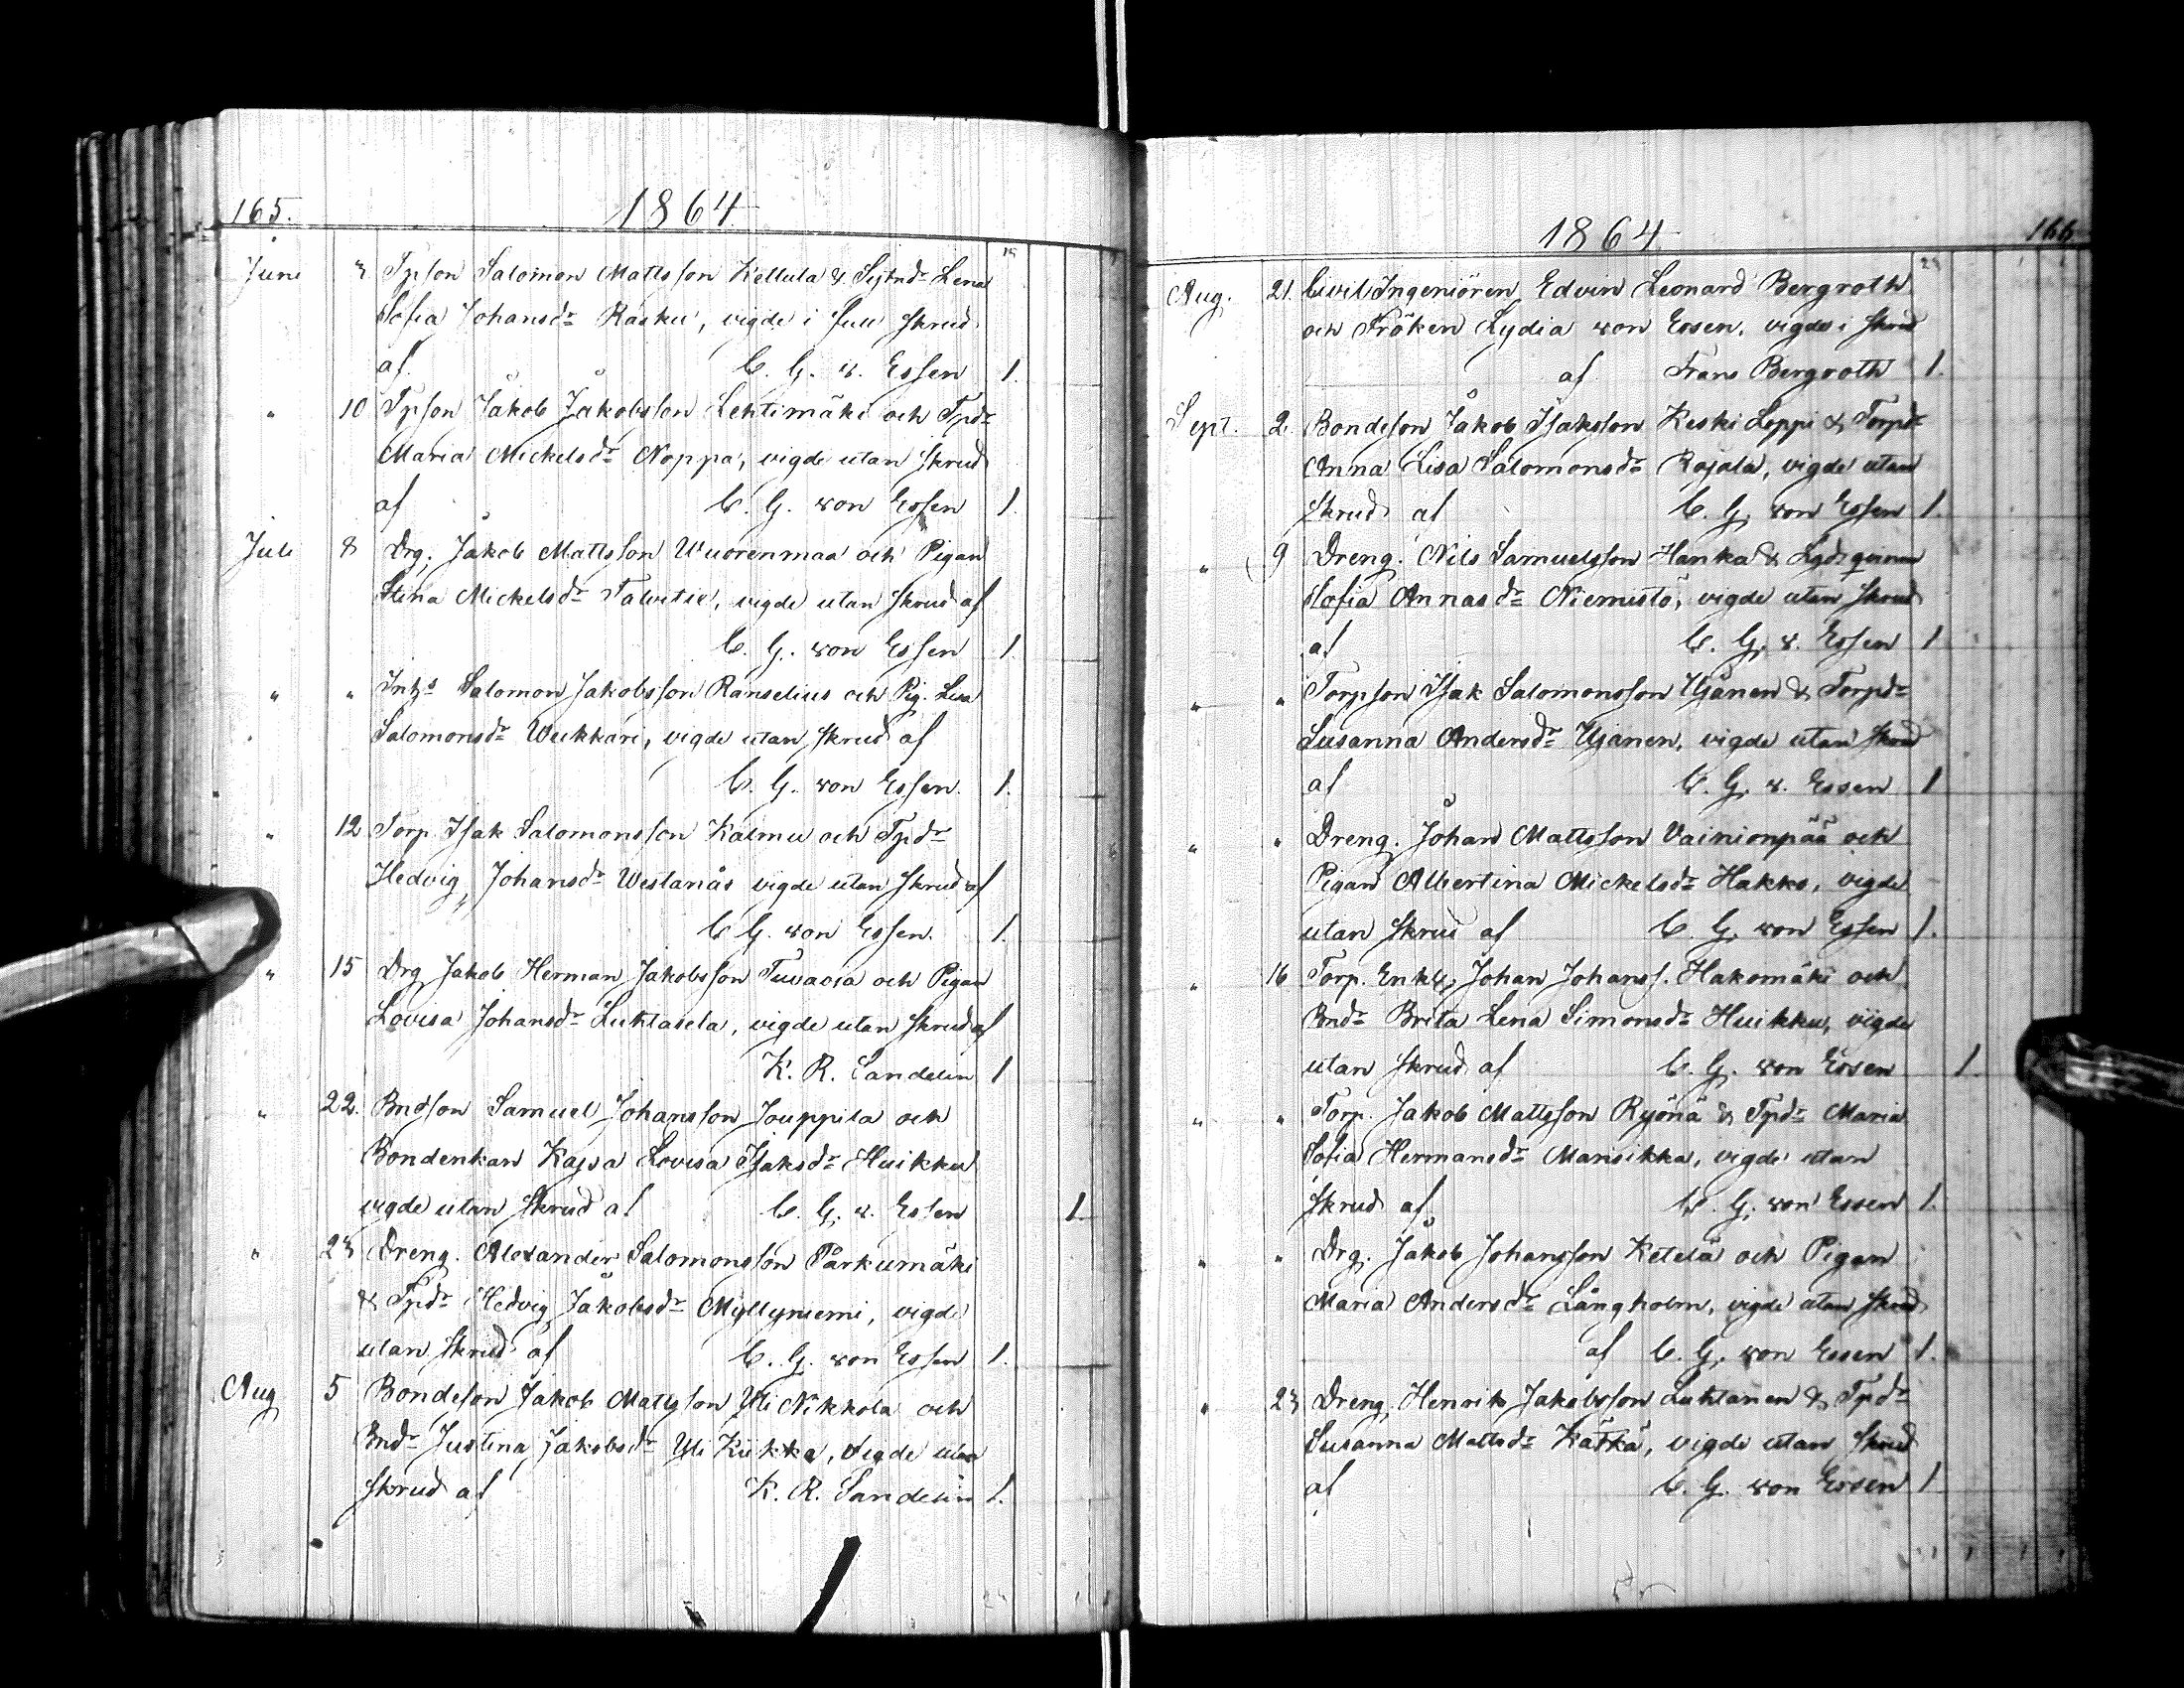 165. 1864
Juni 3 Tpson Salomon Mattsson Kellula & Sytnd:r Lena
Sofia Johansd:r Rasku, vigde i full skrud
af C. G. v. Essen 1.
" 10 Tpson Jakob Jakobsson Lehtimäki och Tpd:r
Maria Mickelsd:r Noppa, vigde utan skrud
af C. G. von Essen 1.
Juli 8 Drg. Jakob Mattsson Wuorenmaa och Pigan
Stina Mickelsd:r Talvitie, vigde utan skrud af
C. G. von Essen 1.
" " Inh:s Salomon Jakobsson Ranselius och Pig. Lisa
Salomonsd:r Weikkari, vigde utan skrud af
C. G. von Essen. 1.
" 12 Torp. Isak Salomonsson Kalmu och Tpd:r
Hedvig Johansd:r Westanås vigde utan skrud af
C. G. von Essen. 1.
" 15 Drg Jakob Herman Jakobsson Tuvaosa och Pigan
Lovisa Johansd:r Luhtasela, vigde utan skrud af
K. R. Sandelin 1
" 22. Bndson Samuel Johansson Jouppila och
Bondenkan Kajsa Lovisa Isaksd:r Huikku
vigde utan skrud af C. G. v. Essen 1.
" 23 Dreng. Alexander Salomonsson Pärkumäki
& Tpd:r Hedvig Jakobsd:r Myllyniemi, vigde
utan skrud af C. G. von Essen 1.
Aug 5 Bondeson Jakob Mattsson Yli Nikkola och
Bnd:r Justina Jakobsd:r Yli Kiikka, vigde utan
skrud af K. R. Sandelin 1.
1864 166
Aug. 21. Civil Ingeniören Edvin Leonard Bergroth
och Fröken Lydia von Essen, vigde i skrud
af Frans Bergroth 1.
Sept. 2. Bondeson Jakob Isaksson Keski Loppi & Torpd:r
Anna Lisa Salomonsd:r Rojola, vigde utan
skrud af C. G. von Essen 1.
" 9 Dreng. Nils Samuelsson Hanka & Lgdsqvinnan
Sofia Annasd:r Niemistö, vigde utan skrud
af C. G. v. Essen 1
" " Torpson Isak Salomonsson Ujänen & Torpd:r
Susanna Andersd:r Ujanen, vigde utan skrud
af C. G. v. Essen 1
" " Dreng. Johan Mattsson Vainionpää och
Pigan Albertina Mickelsd:r Hakko, vigde
utan skrud af C. G. von Essen 1.
" 16 Torp. Enkl. Johan Johanss. Hakomäki och
Bnd:r Brita Lena Simonsd:r Huikku, vigde
utan skrud af C. G. von Essen 1.
" " Torp. Jakob Mattsson Ryönä & Tpd:r Maria
Sofia Hermansd:r Mansikka, vigde utan
skrud af C. G. von Essen 1.
" " Drg. Jakob Johansson Ketelä och Pigan
Maria Andersd:r Långholm, vigde utan skrud
af C. G. von Essen 1.
" 23 Dreng. Henrik Jakobsson Luhtanen & Tpd:r
Susanna Mattsd:r Kätkä, vigde utan skrud
af C. G. von Essen 1